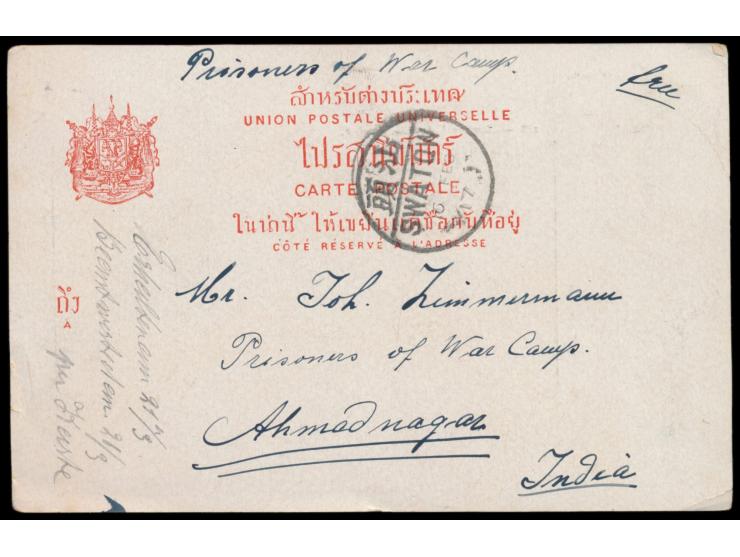 Prisoners of War Camp.
free
สำหรับต่างประเทศ
UNION POSTALE UNIVERSELLE
ไปรสนีย์บัตร์
CARTE POSTALE
ในน่านี้ ให้เขียนแต่ชื่อกับที่อยู่
CÔTÉ RÉSERVÉ À L'ADRESSE
SWATON
ถึง
A
Mr. Joh. Zimmermann
Prisoners of War Camp.
Ahmadnagar
India
21/3
21/3
per Karte